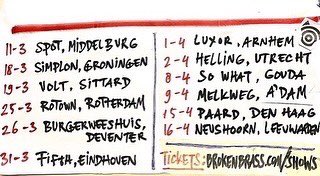 11-3 SPOT, MIDDELBURG
18-3 SIMPLON, GRONINGEN
19-3 VOLT, SITTARD
25-3 ROTOWN, ROTTERDAM
26-3 BURGERWEESHUIS,
DEVENTER
31-3 FIFTH, EINDHOVEN
1-4 LUXOR, ARNHEM
2-4 HELLING, UTRECHT
8-4 SO WHAT, GOUDA
9-4 MELKWEG, A'DAM
15-4 PAARD, DEN HAAG
16-4 NEUSHOORN, LEEUWARDEN
TICKETS: BROKENBRASS.COM/SHOWS